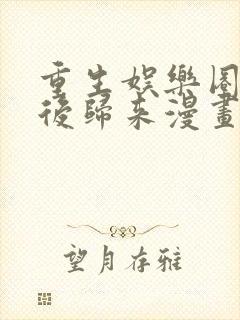 重生娛樂圈
後歸來漫畫
望月存雅